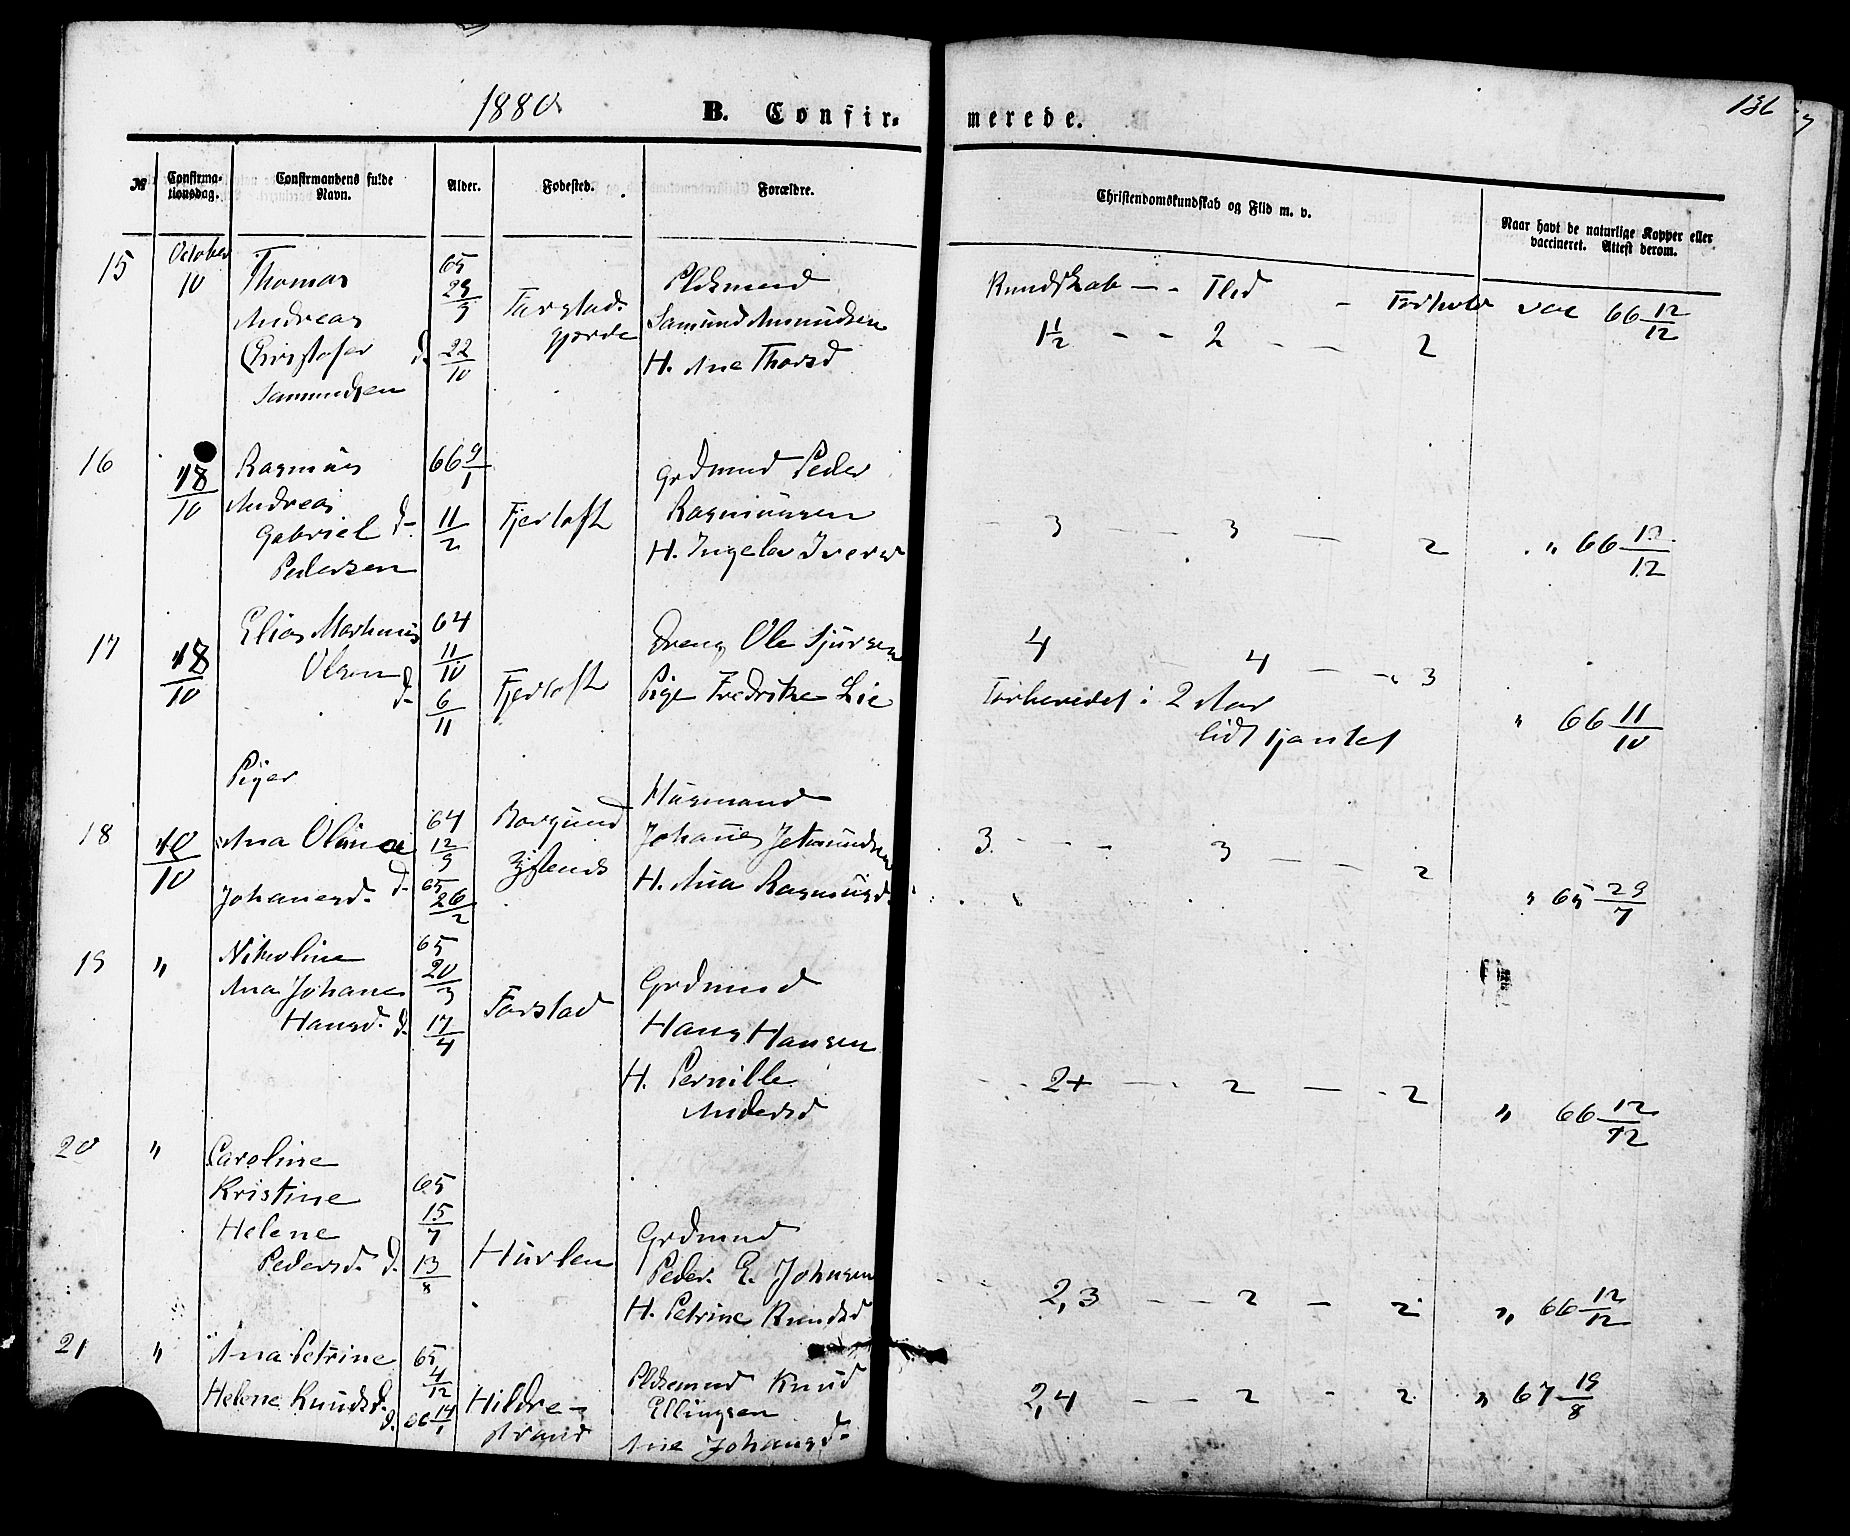 1880
B. Confirmerede.
136
№
Confirma-
tionsdag.
Confirmandens fulde
Navn.
Alder.
Fødested.
Forældre.
Christendomskundskab og Flid m. v.
Naar havt de naturlige Kopper eller
vaccineret. Attest derom.
15
October
10
Thomas
Andreas
Christofer d.
Samundsen
65
29/9
22/10
Farstad-
gjerde
Pldsmand
Samund Amundsen
H. Ane Thorsd
Kundskab - - Flid - Forhold
1 1/2 - - 2 - - 2
vac 66 12/12
16
18/10
Rasmus
Andreas
Gabriel d-
Pedersen
66 9/1
11/2
Fjertoft
Grdmand Peder
Rasmussen
H. Ingelev Ivers
3 - 3 - 2
" 66 12/12
17
18/10
Elias Martinus
Olsen d-
64
11/10
6/11
Fjertoft
Dreng Ole Sjursen
Pige Fredrikke Lie
4 4 - 3
Forberedet i 2 Aar
lidt
" 66 11/10
Piger
18
10/10
Ana Olina
Johanesd. d-
64
12/9
65
26/2
Borgund
Husmand
Johanes Jetmundsen
H. Ana Rasmusd.
3 - - - 3 - - 2
" 65 29/7
19
"
Nikoline
Ana Johane
Hansd. d.
65
20/3
17/4
Farstad
Grdmand
Hans Hansen
H. Pernille
Andersd
2+ - 2 - 2
" 66 12/12
20
"
Caroline
Kristine
Helene
Pedersd. d.
65
15/7
13/8
Hurlen
Grdmand
Peder E. Johnsen
H. Petrine Knudsd
2,3 - - 2 - 2
" 66 12/12
21
"
Ana Petrine
Helene Knudsd.
d.
65
4/12
66 14/1
Hildre-
strand
Pldsmand Knud
Ellingsen
Ane Johansd.
2,4 - - 2 - 2
" 67 19/8